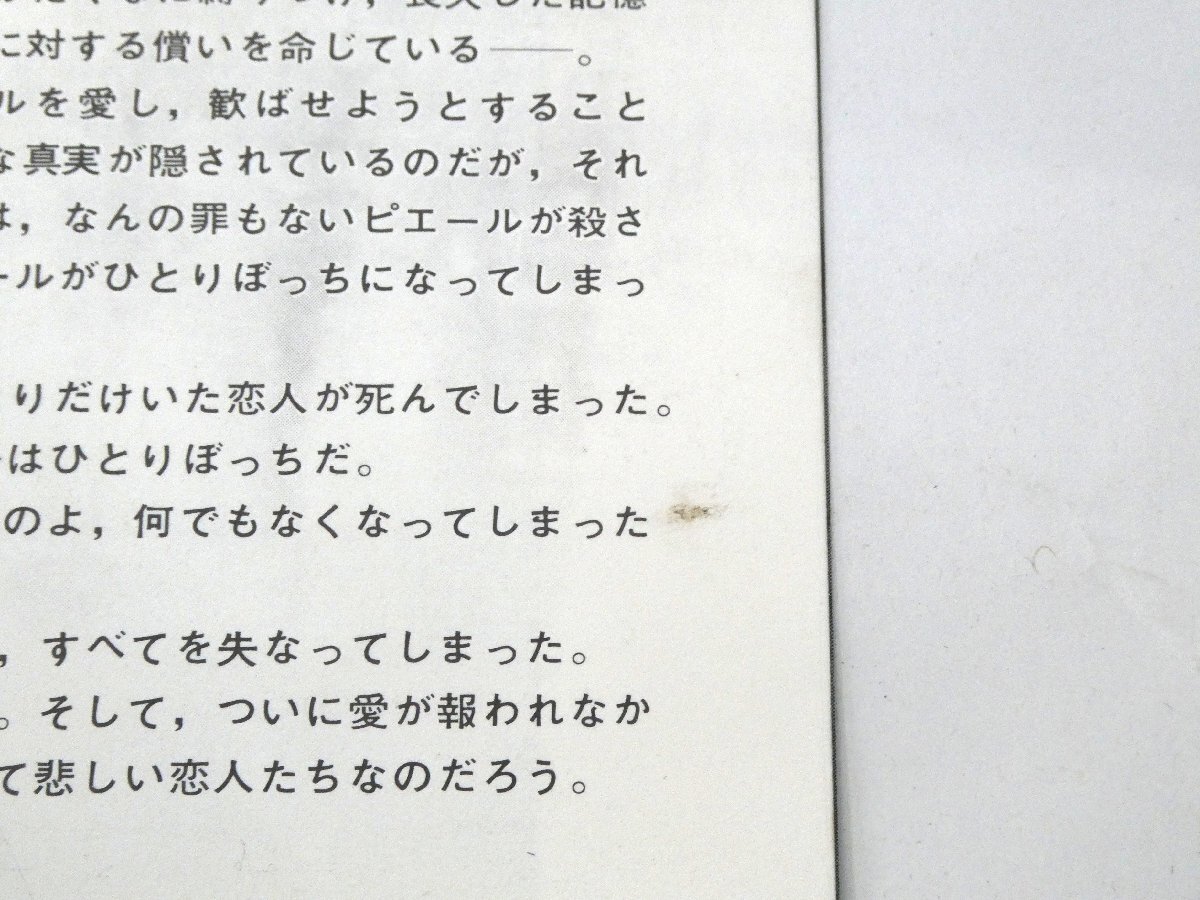 に対する償いを命じている――。
ルを愛し，歓ばせようとすること
な真実が隠されているのだが，それ
は，なんの罪もないピエールが殺さ
ールがひとりぼっちになってしまっ
りだけいた恋人が死んでしまった。
はひとりぼっちだ。
のよ，何でもなくなってしまった
，すべてを失なってしまった。
。そして，ついに愛が報われなか
て悲しい恋人たちなのだろう。